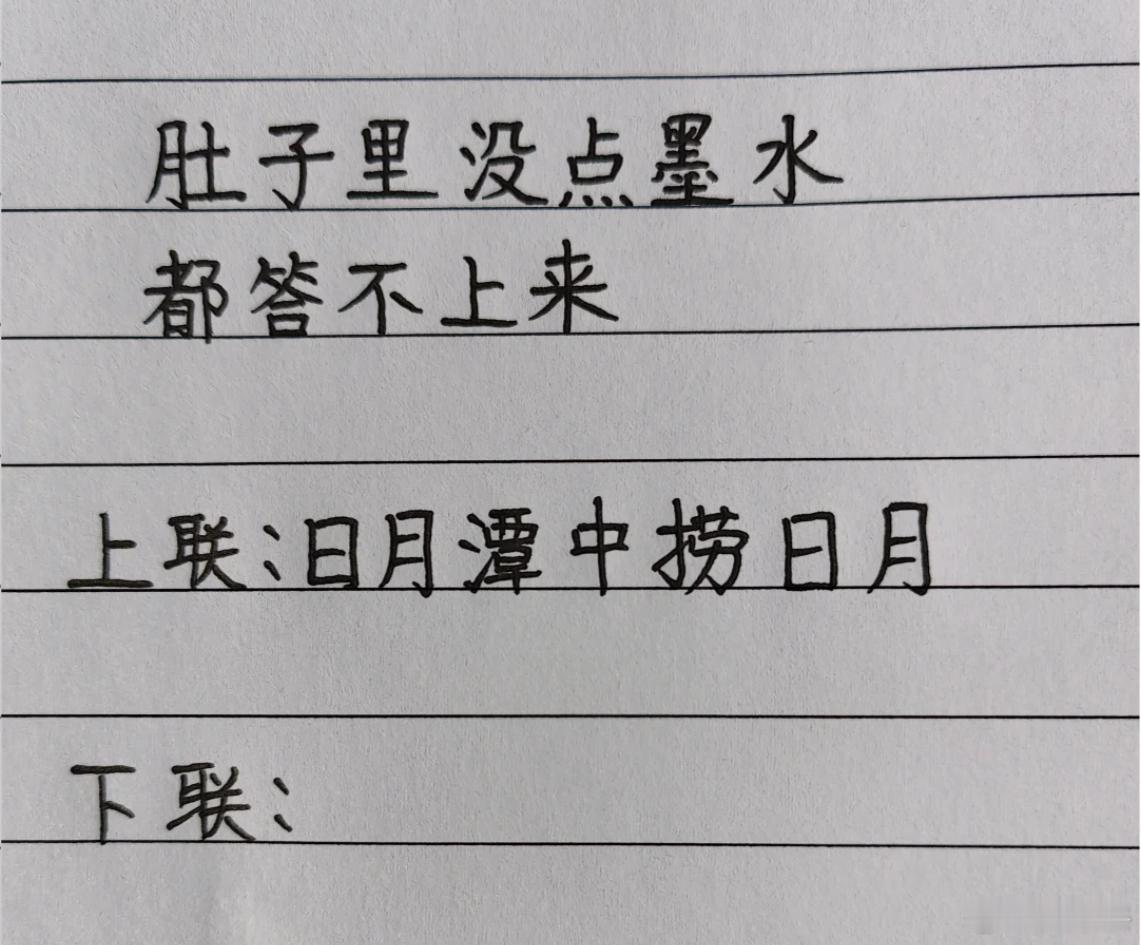 肚子里没点墨水
都答不上来
上联:日月潭中捞日月
下联: